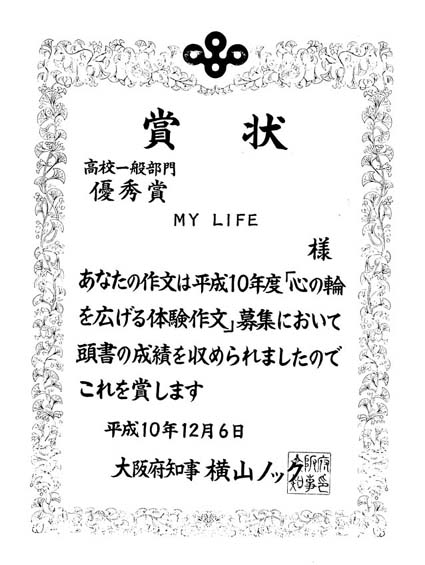 賞状
高校一般部門
優秀賞
MY LIFE
様
あなたの作文は平成10年度「心の輪
を広げる体験作文」募集において
頭書の成績を収められましたので
これを賞します
平成10年12月6日
大阪府知事 横山ノック